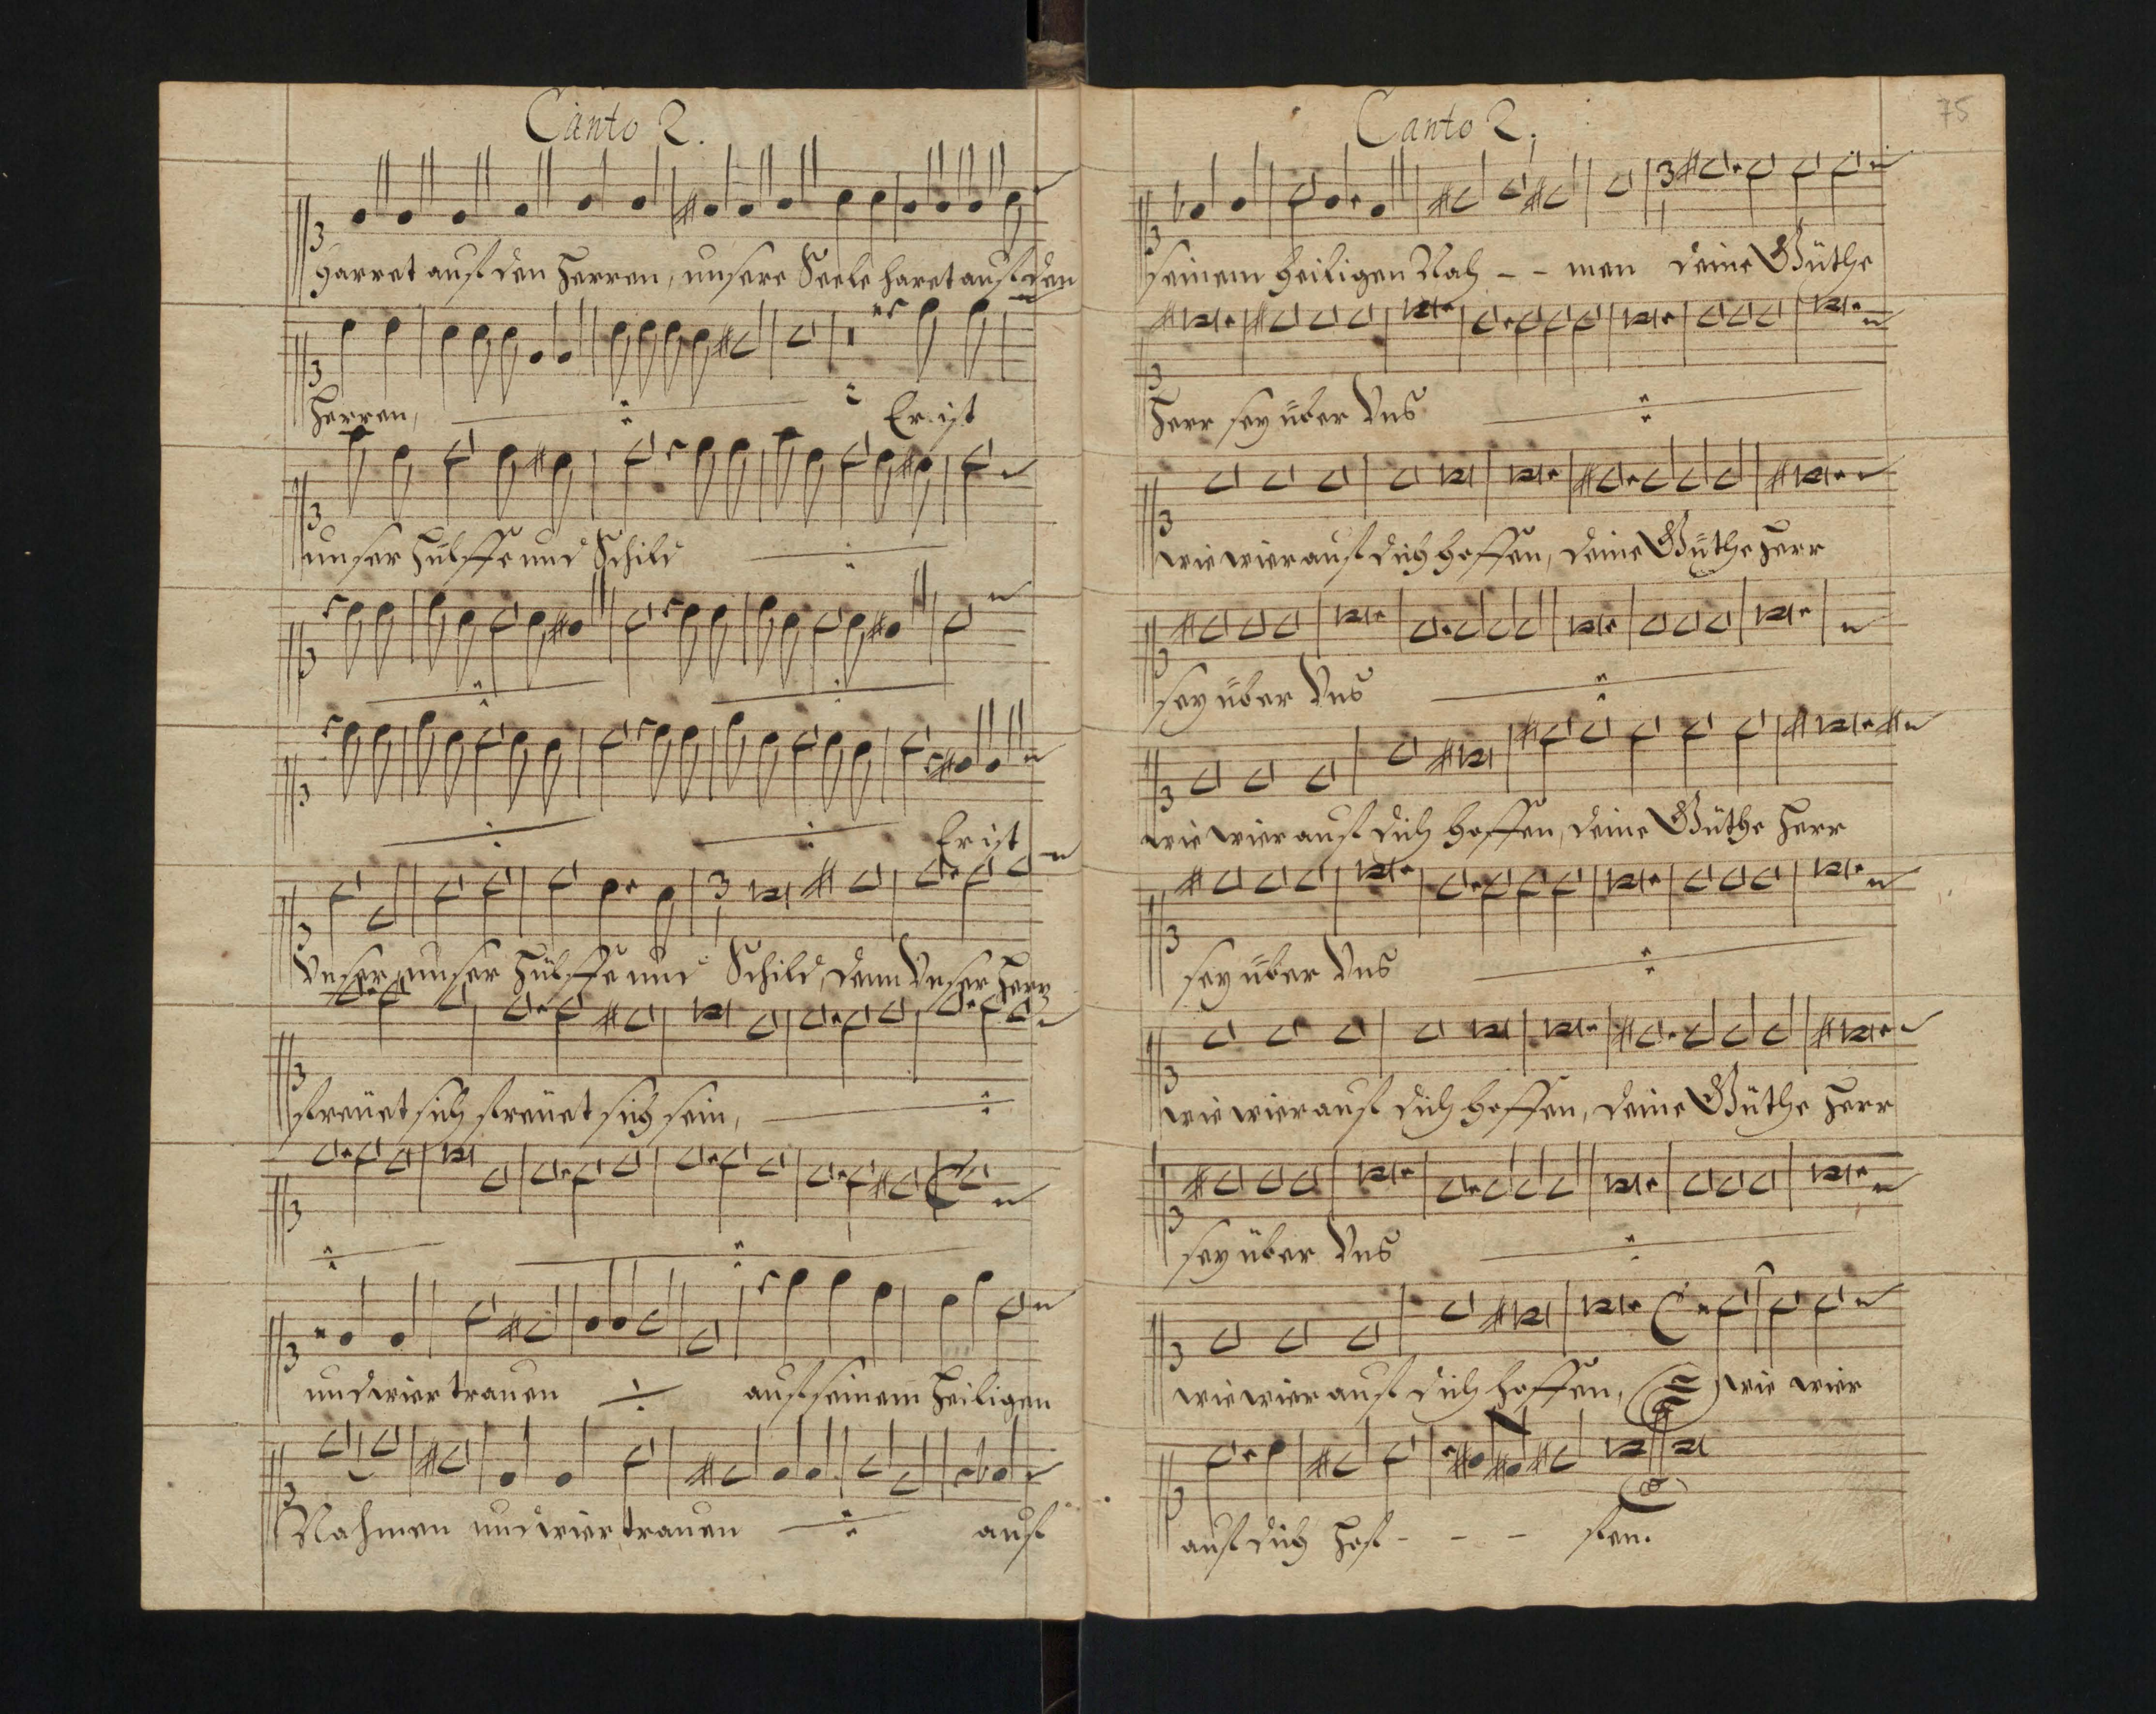 Canto 2.
harret auf den Herren, unsere Seele haret auf den
Herren, Er ist
unser Hülffe und Schild
Er ist
Unser, unser Hülffe und Schild, denn Unser Herz
freüet sich freüet sich sein,
und wier trauen auf seinem Heiligen
Nahmen und wier trauen auf
Canto 2.
75
seinem heiligen Nah - - men deine Güthe
Herr sey über Uns
wie wier auf dich hoffen, deine Güthe Herr
sey über Uns
wie wier auf dich hoffen, deine Güthe Herr
sey über Uns
wie wier auf dich hoffen, deine Güthe Herr
sey über Uns
wie wier auf dich hoffen, wie wier
auf dich hof - - - fen.